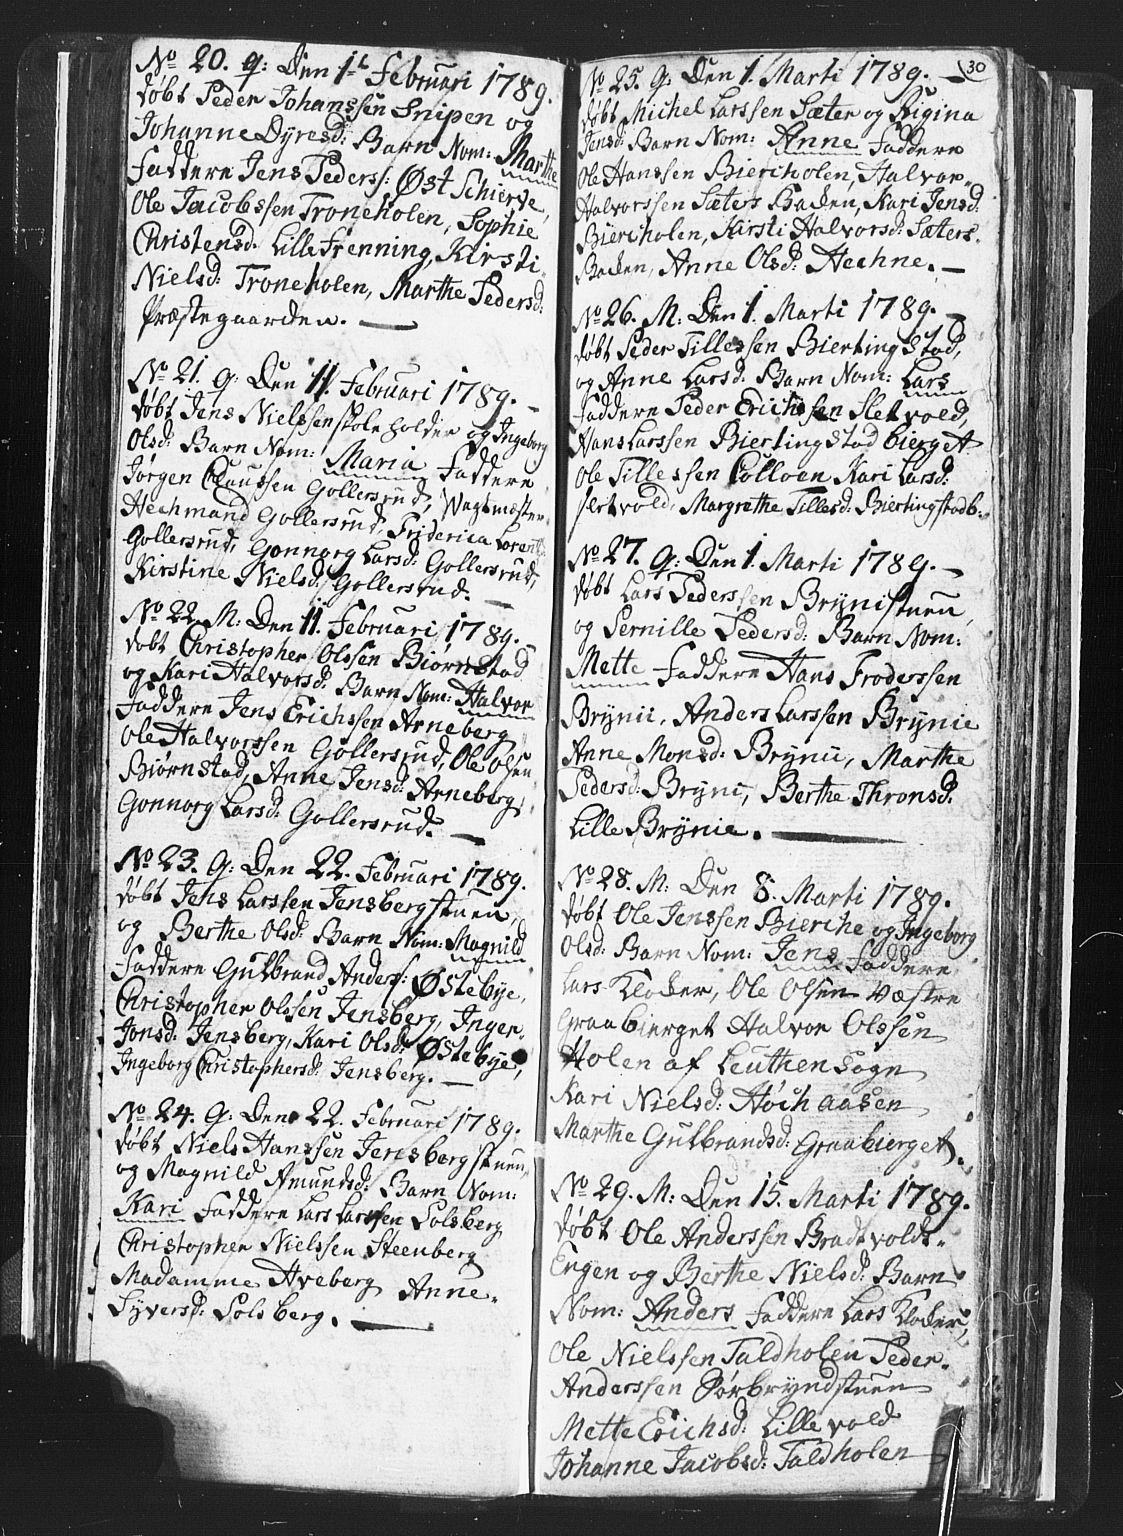 No 20. q: Den 1te Februari 1789.
døbt Peder Johanssen Snipen og
Johanne Dyresd: Barn Nom: Marthe
Faddere Jens Peders: Øst Schierve,
Ole Jacobssen Troneholen, Sophie
Christensd. Lille Frenning, Kirsti
Nielsd: Troneholen, Marthe Pedersd:
Præstegaarden.
No 21. q: Den 11. Februari 1789.
døbt Jens Nielssen skoleholder og Ingeborg
Olsd: Barn Nom: Maria Faddere
Jørgen Claussen Gollersrud, Wagtmæster
Hechmand Gollersrud, Friderica Lorents:
Gollersrud, Gonnorg Larsd: Gollersrud,
Kirstine Nielsd: Gollersrud.
No 22. M: Den 11. Februari 1789.
døbt Christopher Olssen Biørnstad
og Kari Halvorsd: Barn Nom: Halvor
Faddere Jens Erichssen Arneberg
Ole Halvorssen Gollersrud, Ole Olsen
Biørnstad, Anne Jensd: Arneberg,
Gonnorg Larsd: Gollersrud.
No 23. q: Den 22. Februari 1789.
døbt Jens Larssen Jensbergstuen
og Berthe Olsd: Barn Nom: Magnild
Faddere Gulbrand Anders: Østebye,
Christopher Olssen Jensberg, Inger
Jonsd: Jensberg, Kari Olsd: Østebye,
Ingeborg Christophersd: Jensberg.
No 24. q: Den 22. Februari 1789.
døbt Niels Hanssen Jensbergstuen
og Magnild Amundsd: Barn Nom:
Kari Faddere Lars Larssen Solsberg
Christopher Nielssen Steenberg
Madamme Aveberg Anne
Syversd: Solsberg.
30
No 25. q: Den 1. Marti 1789.
døbt Michel Larssen Sæter og Rigina
Jensd: Barn Nom: Anne Faddere
Ole Hanssen Biercholen, Halvor
Halvorssen Sæters Backen, Kari Jensd:
Biercholen, Kirsti Halvorsd: Sæters
Backen, Anne Olsd: Aechne.
No 26. M: Den 1. Marti 1789.
døbt Peder Tillessen Biertingstad,
og Anne Larsd: Barn Nom: Lars
Faddere Peder Erichssen Sletvold,
Hans Larssen Biertingstad bierget
Ole Tillessen Colloen Kari Larsd:
sletvold, Margrethe Tillesd: Biertingstadb:
No 27. q: Den 1. Marti 1789.
døbt Lars Pederssen Brynistuen
og Pernille Pedersd: Barn Nom:
Mette Faddere Hans Froderssen
Brynii, Anders Larssen Brynie
Anne Monsd: Brynii, Marthe
Pedersd: Bryni, Berthe Thronsd:
Lille Brynie.
No 28. M: Den 8. Marti 1789.
døbt Ole Jenssen Bierche og Ingeborg
Olsd: Barn Nom: Jens Faddere
Lars Klocker, Ole Olsen Væstre
Graabierget Halvor Olssen
Holen af Leuthen Sogn
Kari Nielsd: Høchaasen
Marthe Gulbrandsd: Graabierget.
No 29. M: Den 15. Marti 1789.
døbt Ole Anderssen Bradtvolds
Engen og Berthe Nielsd: Barn
Nom: Anders Faddere Lars Klocker,
Ole Nielssen Taldholen Peder
Anderssen Sørbryndstuen
Mette Erichsd: Lille vold
Johanne Jacobsd: Taldholen